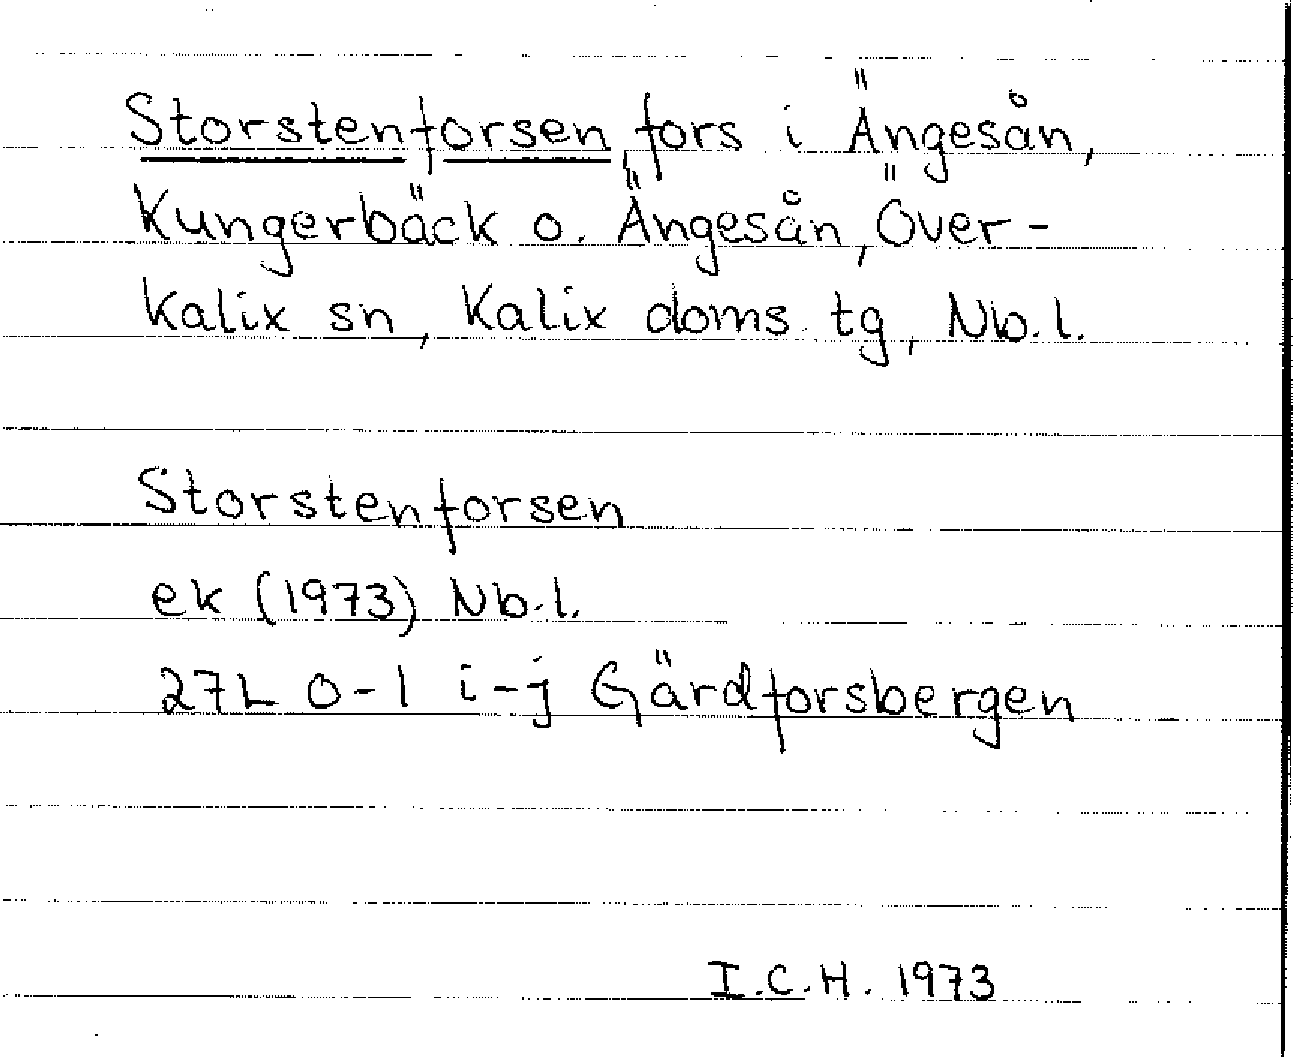 Storstenforsen, fors i Ängesån,
Kungerbäck o. Ängesån, Över-
kalix sn, Kalix doms. tg, Nb.l.
Storstenforsen
ek (1973) Nb.l.
27L 0-1 i-j Gärdforsbergen
I.C.H. 1973